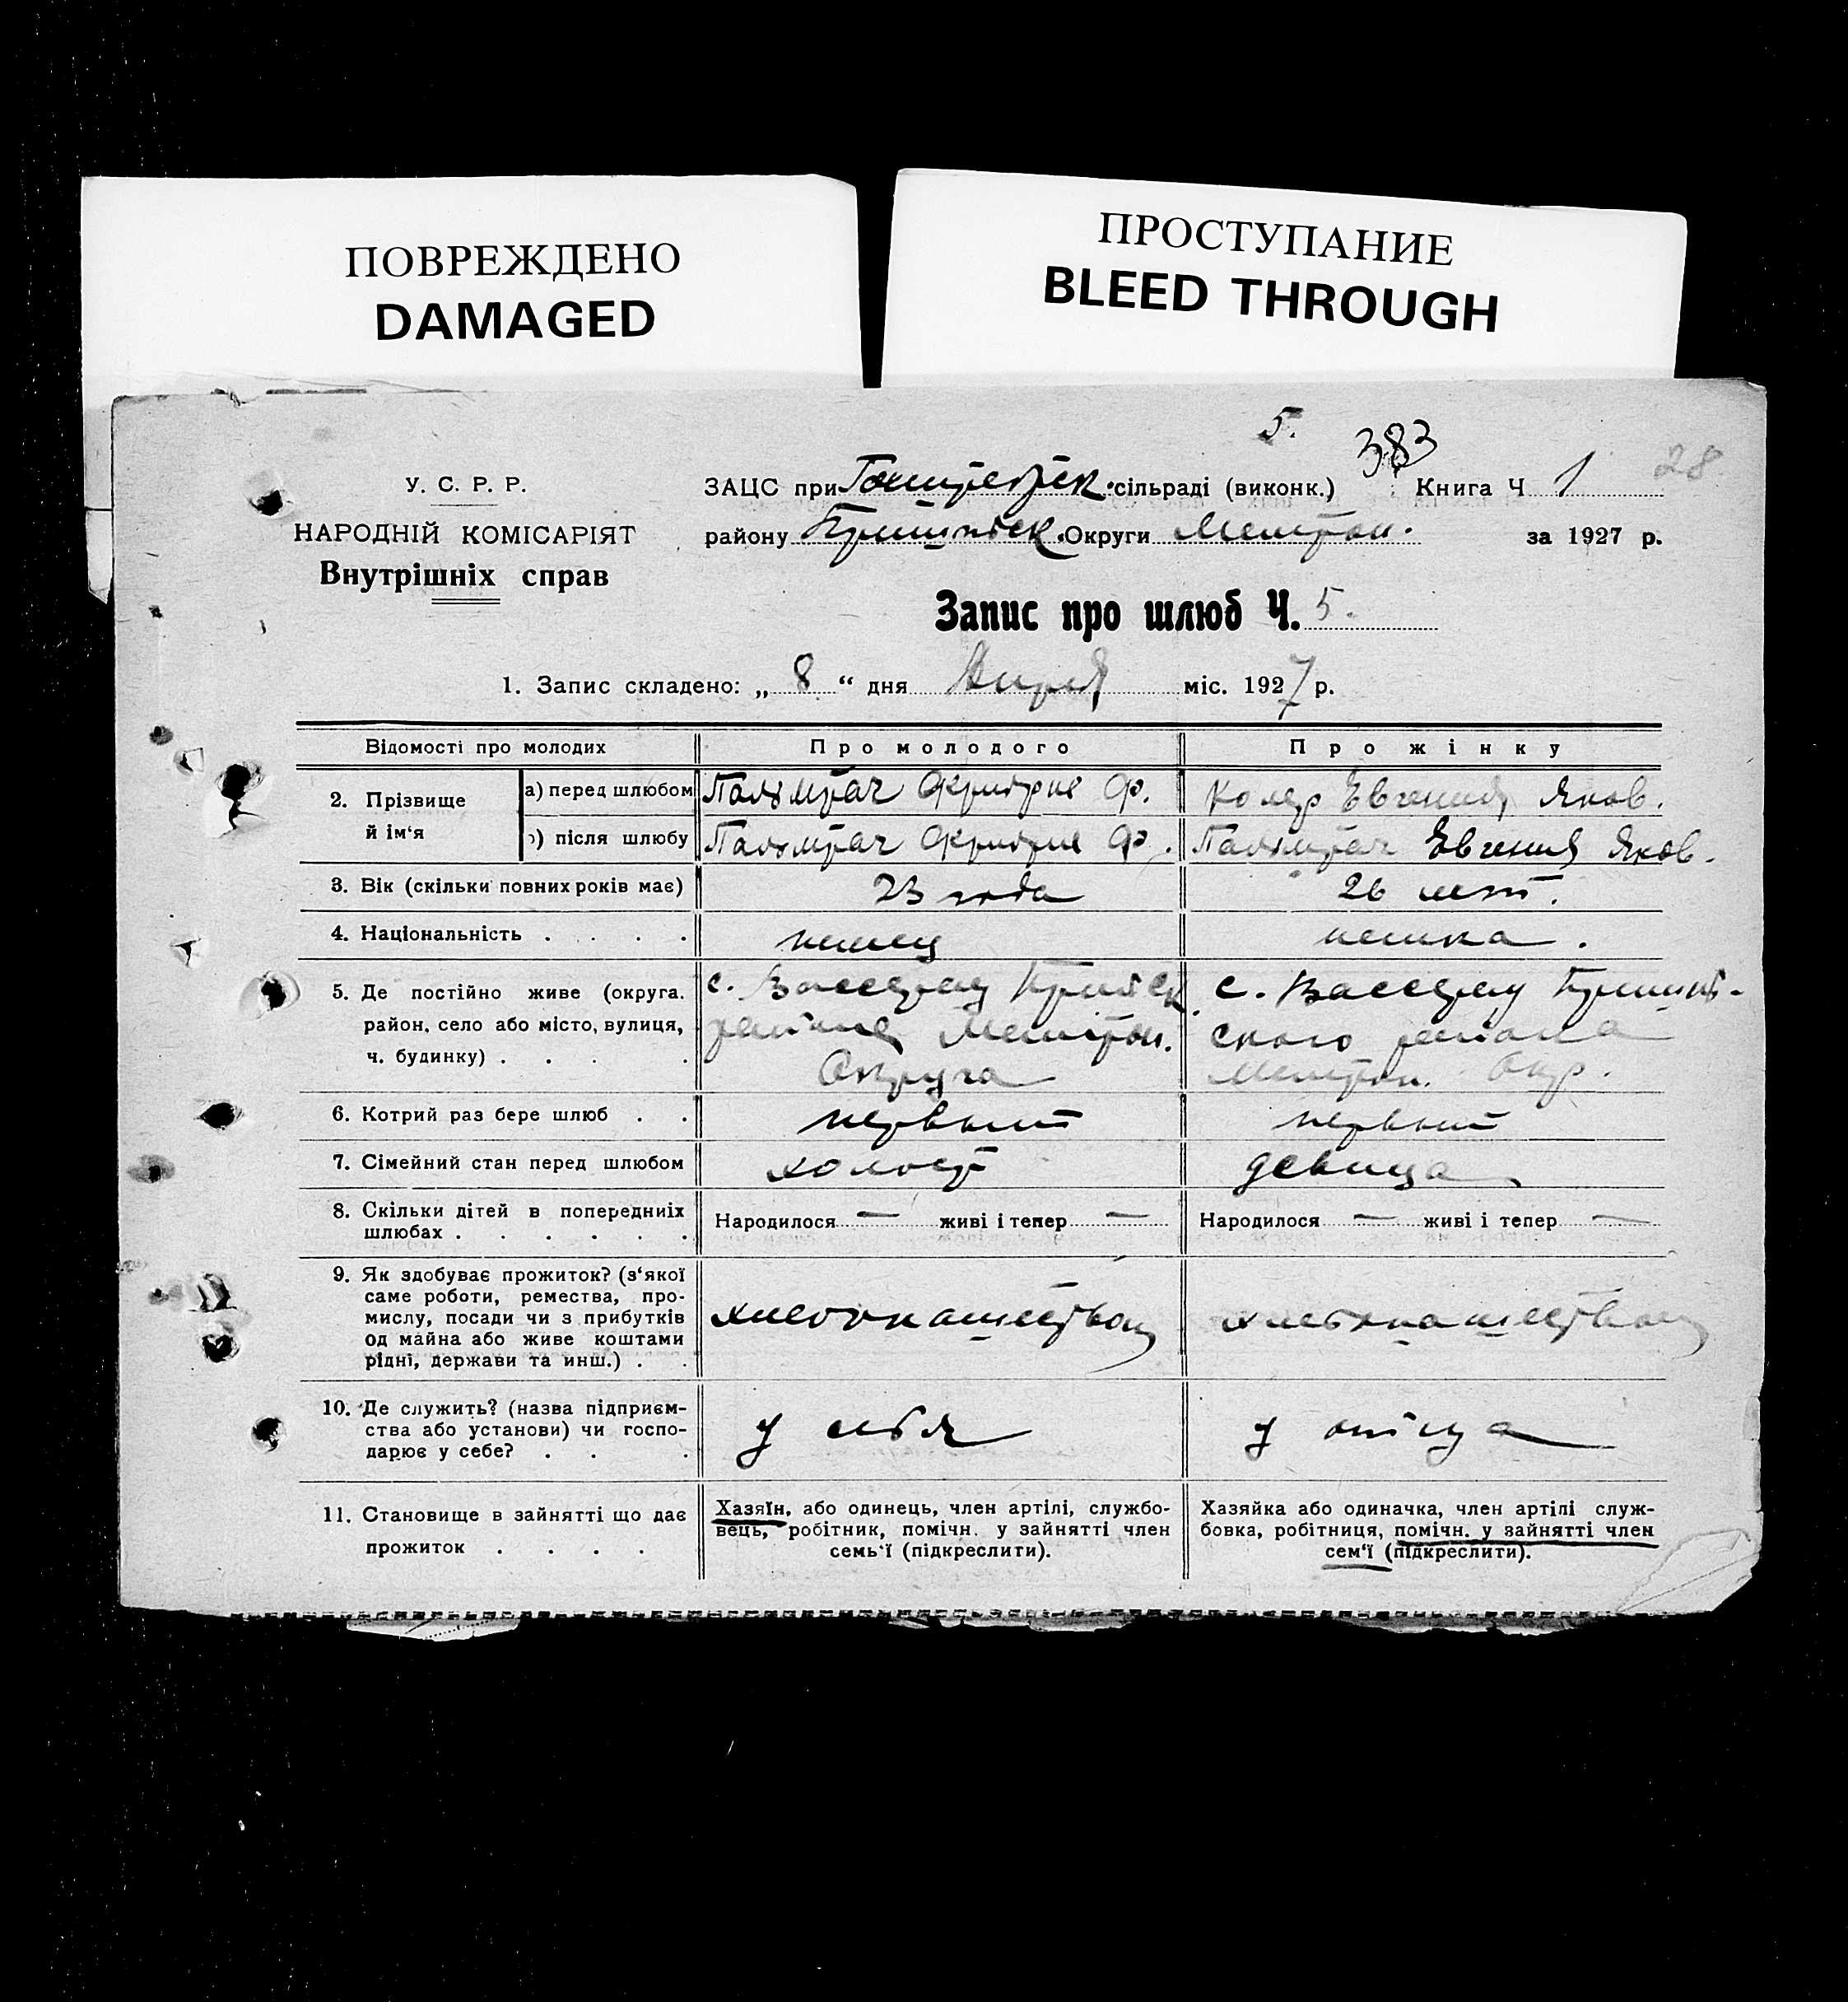 ПОВРЕЖДЕНО
DAMAGED
ПРОСТУПАНИЕ
BLEED THROUGH
5.
383
28
У. С. Р. Р.
НАРОДНІЙ КОМІСАРІЯТ
Внутрішніх справ
ЗАЦС при сільраді (виконк.) Книга Ч 1
району Округи Мелитоп. за 1927 р.
Запис про шлюб Ч. 5.
1. Запис складено: „ 8 “ дня Апреля міс. 1927 р.
Відомості про молодих Про молодого Про жінку
2. Прізвище й ім‘я
а) перед шлюбом Ф. Евгения Яков.
б) після шлюбу Ф. Евгения Яков.
3. Вік (скільки повних років має) 23 года 26 лет.
4. Національність . . . . немец немка.
5. Де постійно живе (округа. с. Вассерау с. Вассерау
район, село або місто, вулиця, района Мелитоп. ского района
ч. будинку) . . . . Округа Мелитоп. Окр.
6. Котрий раз бере шлюб . . первый первый
7. Сімейний стан перед шлюбом холост девица
8. Скільки дітей в попередниіх Народилося — живі і тепер — Народилося — живі і тепер —
шлюбах . . . . . .
9. Як здобуває прожиток? (з‘якої
саме роботи, ремества, про-
мислу, посади чи з прибутків хлебопашеством хлебопашеством
од майна або живе коштами
рідні, держави та инш.) . .
10. Де служить? (назва підприєм-
ства або установи) чи госпо- у себя у отца
дарює у себе? . . .
11. Становище в зайнятті що дає
прожиток . . . .
Хазяїн, або одинець, член артілі, службо-
вець, робітник, помічн. у зайнятті член
семь‘ї (підкреслити).
Хазяйка або одиначка, член артілі служ-
бовка, робітниця, помічн. у зайнятті член
сем‘ї (підкреслити).